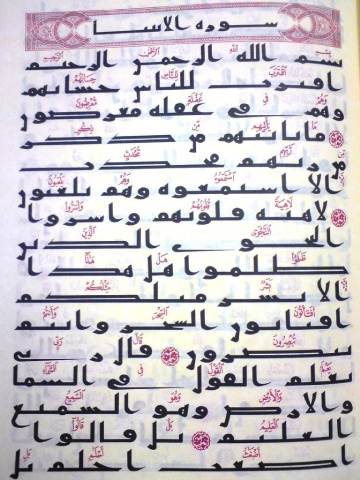 سورة الانبيا
بسم الله الرحمن الرحيم
اقترب للناس حسابهم
وهم في غفلة معرضون
ما ياتيهم من ذكر
من ربهم محدث
الا استمعوه وهم يلعبون
لاهية قلوبهم واسروا
النجوى الذين
ظلموا هل هذا
الا بشر مثلكم
افتاتون السحر وانتم
تبصرون قال ربي
يعلم القول في السما
والارض وهو السميع
العليم بل قالوا
اضغث احلم بل